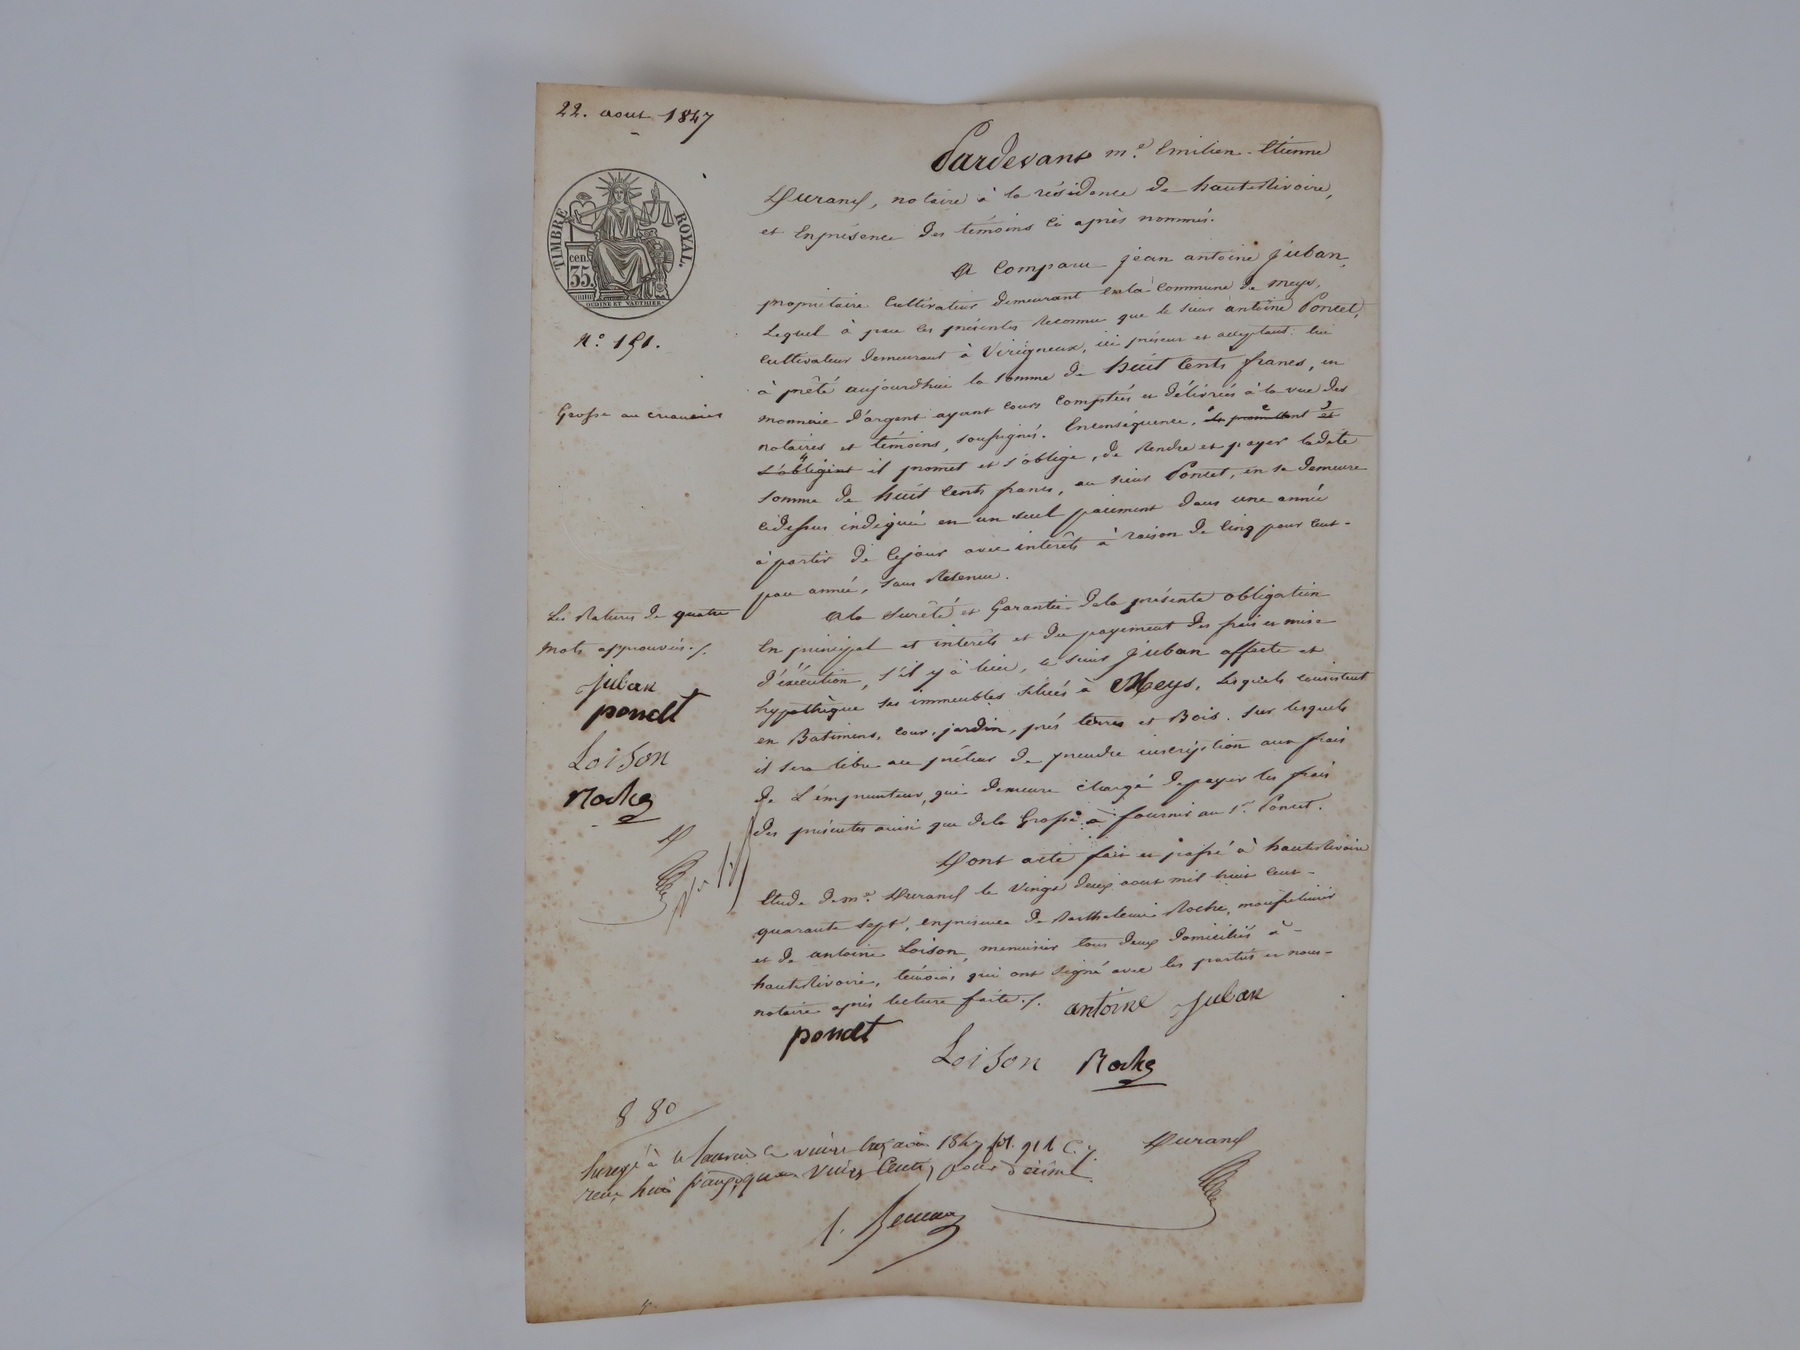 22. aout 1847
TIMBRE ROYAL.
cen.
35.
OUDINE ET VAUTHIER
N.o 151.
Grosse au créancier
Les Ratures de quatre
mots approuvés ./.
juban
poncet
Loison
Roche
D
Pardevant m.e Emilien Etienne
Durand, notaire à la résidence de hauterivoire,
et En présence des témoins Ci après nommés.
A Comparu jean antoine juban,
propriétaire Cultivateur demeurant en la Commune de meys,
Lequel à par les présentes Reconnu que le sieur antoine Poncet,
Cultivateur demeurant à Virigneux, ici présent et acceptant lui
à prêté aujourdhui la somme de huit Cents francs, en
monnaie d'argent ayant cours Comptées et délivrées à la vue des
notaires et témoins, soussignés. En conséquence, ils promettent et
s'obligent il promet et s'oblige, de Rendre et payer ladite
Somme de huit Cents francs, au sieur Poncet, en sa demeure
cidessus indiquée en un seul paiement dans une année
à partir de Cejour avec intérêts à raison de Cinq pour Cent
par année, sans Retenue.
A la sureté et Garantie de la présente obligation
En principal et intérêts et du payement des frais et mise
d'éxécution, s'il y à lieu, le sieur juban affecte et
hypothèque ses immeubles situés à Meys, Lesquels consistent
en Batimens, cour, jardin, prés terres et Bois. sur lesquels
il sera libre au prêteur de prendre inscription aux frais
de L'émprunteur, qui demeure chargé de payer les frais
des présentes ainsi que de la Grosse à fournir au s.r Poncet.
Dont acte fait et passé à hauterivoire
Etude de m.e Durand le vingt deux aout mil huit Cent
quarante sept, en présence de Barthelemi Roche,
et de antoine Loison, menuisier tous deux domiciliés à
hauterivoire, témoins qui ont signé avec les parties et nous
notaire après lecture faite ./. antoine juban
poncet
Loison Roche
8 80
1847 fol. 91
Durand